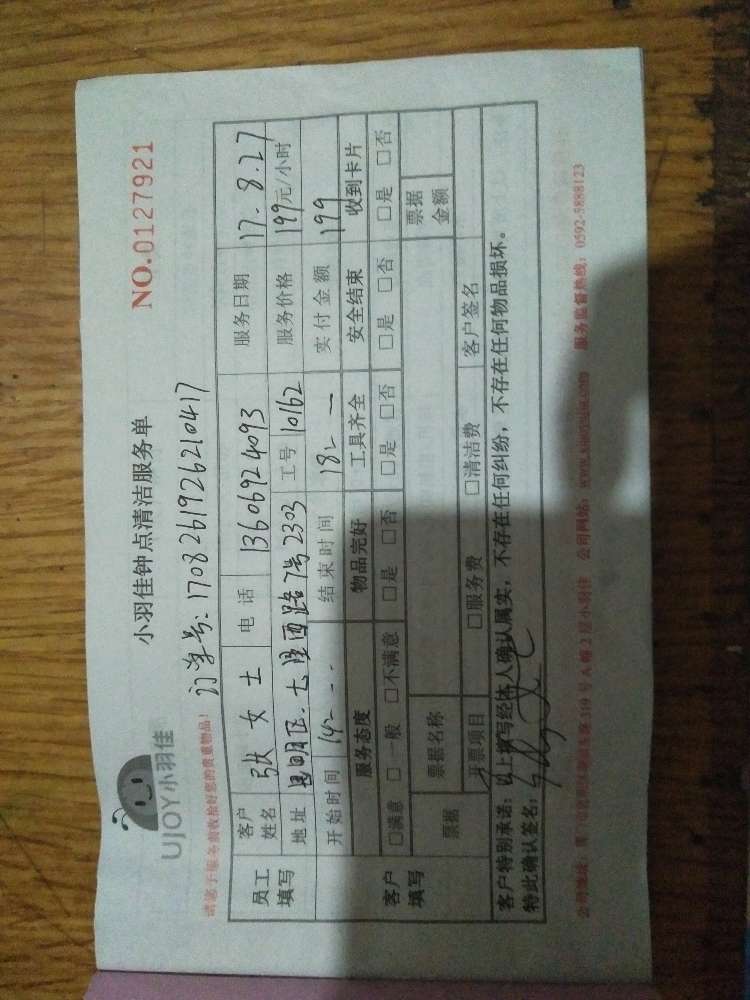 UJOY小羽佳
小羽佳钟点清洁服务单
NO.0127921
订单号:1708261926210417
请客户服务前收拾好您的贵重物品!
员工填写
客户姓名 张女士 电话 13606924093 服务日期 17.8.27
地址 路7号2303 工号 10162 服务价格 199元/小时
开始时间 14 结束时间 18 实付金额 199
客户填写
服务态度 物品完好 工具齐全 安全结束 收到卡片
□满意 □一般 □不满意 □是 □否 □是 □否 □是 □否 □是 □否
票据 票据名称 票据金额
开票项目 □服务费 □清洁费 客户签名
客户特别承诺:以上填写经本人确认属实,不存在任何纠纷,不存在任何物品损坏。
特此确认签名:
公司地址: 319号A幢2层小羽佳 公司网站: 服务监督热线:0592-5888123